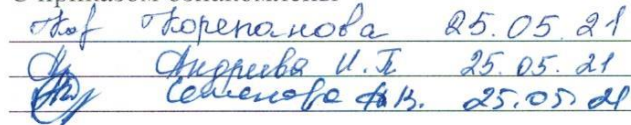 С приказом ознакомлены
Кор Корепанова 25.05.21
Андреева И.П. 25.05.21
Семенова А.В. 25.05.21